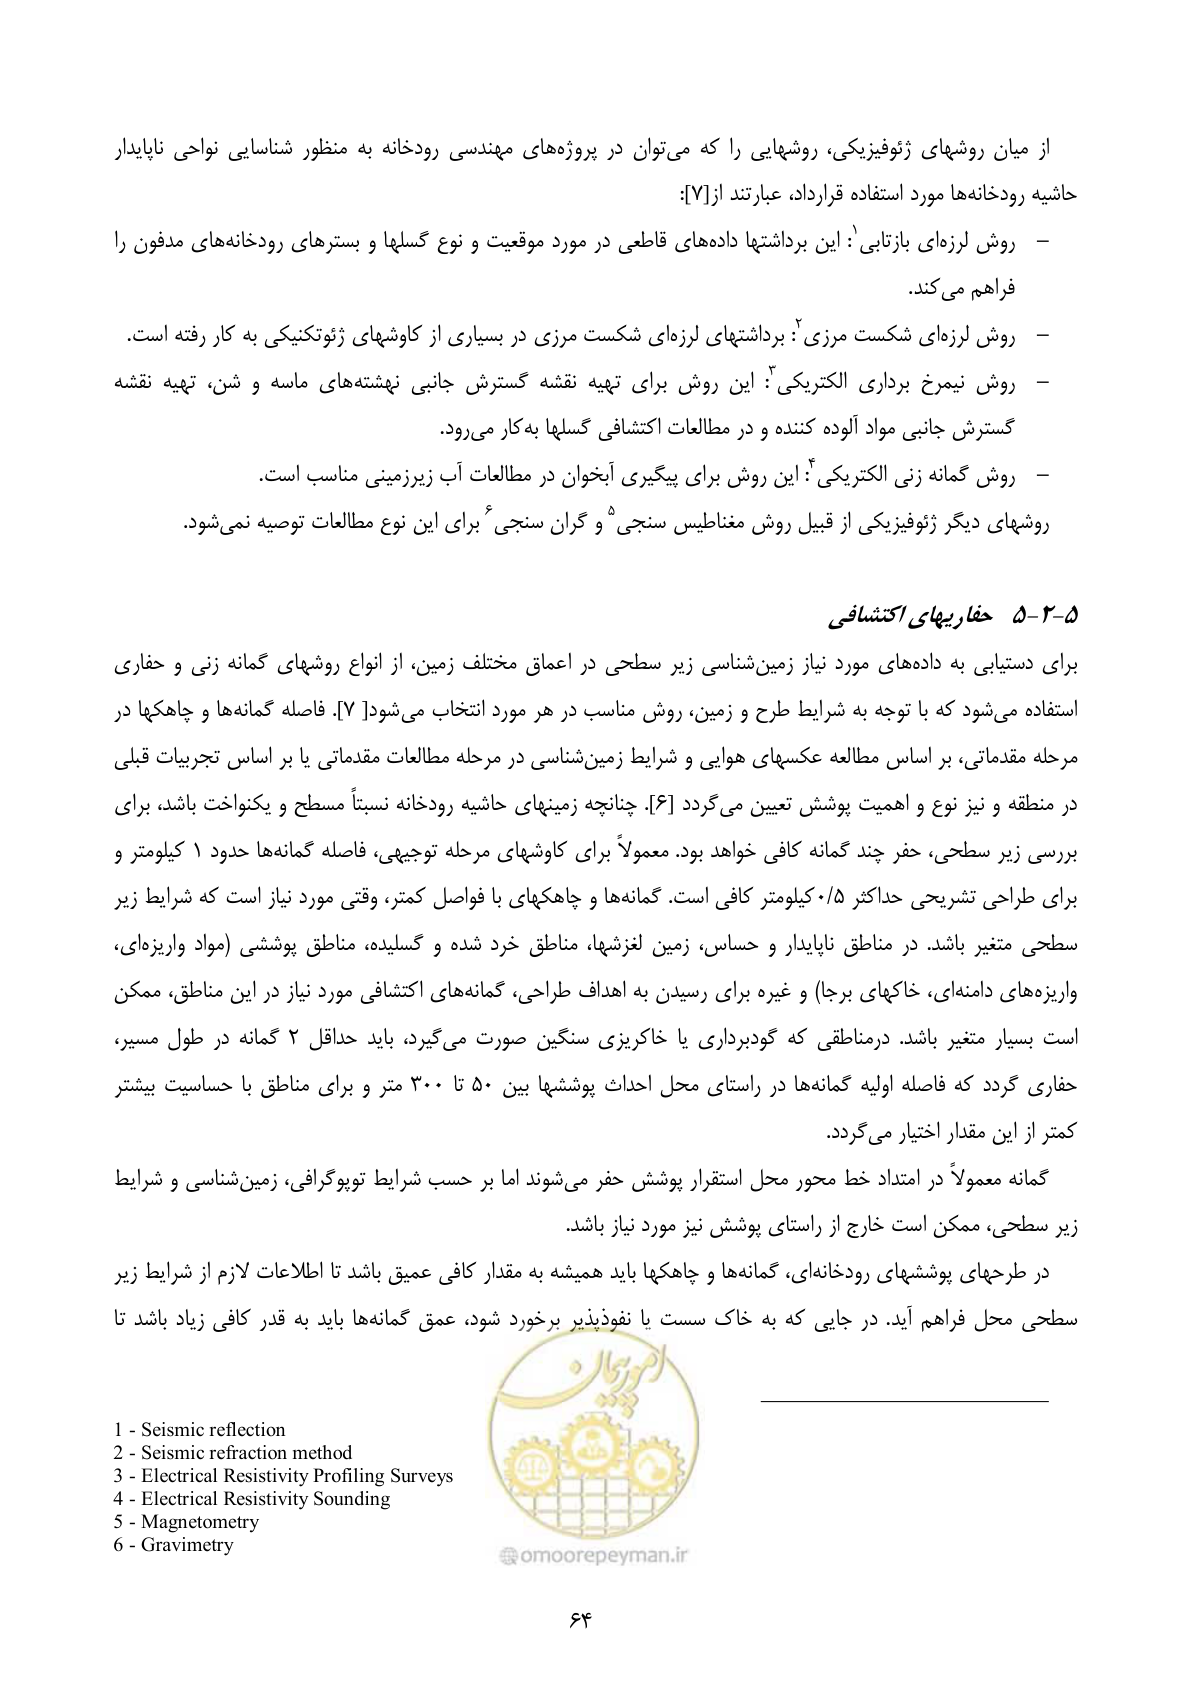 از میان روشهای ژئوفیزیکی، روشهایی را که می‌توان در پروژه‌های مهندسی رودخانه به منظور شناسایی نواحی ناپایدار
حاشیه رودخانه‌ها مورد استفاده قرارداد، عبارتند از[۷]:
– روش لرزه‌ای بازتابی۱: این برداشتها داده‌های قاطعی در مورد موقعیت و نوع گسلها و بسترهای رودخانه‌های مدفون را
فراهم می‌کند.
– روش لرزه‌ای شکست مرزی۲: برداشتهای لرزه‌ای شکست مرزی در بسیاری از کاوشهای ژئوتکنیکی به کار رفته است.
– روش نیمرخ برداری الکتریکی۳: این روش برای تهیه نقشه گسترش جانبی نهشته‌های ماسه و شن، تهیه نقشه
گسترش جانبی مواد آلوده کننده و در مطالعات اکتشافی گسلها به‌کار می‌رود.
– روش گمانه زنی الکتریکی۴: این روش برای پیگیری آبخوان در مطالعات آب زیرزمینی مناسب است.
روشهای دیگر ژئوفیزیکی از قبیل روش مغناطیس سنجی۵ و گران سنجی۶ برای این نوع مطالعات توصیه نمی‌شود.
۵-۲-۵ حفاریهای اکتشافی
برای دستیابی به داده‌های مورد نیاز زمین‌شناسی زیر سطحی در اعماق مختلف زمین، از انواع روشهای گمانه زنی و حفاری
استفاده می‌شود که با توجه به شرایط طرح و زمین، روش مناسب در هر مورد انتخاب می‌شود[ ۷]. فاصله گمانه‌ها و چاهکها در
مرحله مقدماتی، بر اساس مطالعه عکسهای هوایی و شرایط زمین‌شناسی در مرحله مطالعات مقدماتی یا بر اساس تجربیات قبلی
در منطقه و نیز نوع و اهمیت پوشش تعیین می‌گردد [۶]. چنانچه زمینهای حاشیه رودخانه نسبتاً مسطح و یکنواخت باشد، برای
بررسی زیر سطحی، حفر چند گمانه کافی خواهد بود. معمولاً برای کاوشهای مرحله توجیهی، فاصله گمانه‌ها حدود ۱ کیلومتر و
برای طراحی تشریحی حداکثر ۰/۵ کیلومتر کافی است. گمانه‌ها و چاهکهای با فواصل کمتر، وقتی مورد نیاز است که شرایط زیر
سطحی متغیر باشد. در مناطق ناپایدار و حساس، زمین لغزشها، مناطق خرد شده و گسلیده، مناطق پوششی (مواد واریزه‌ای،
واریزه‌های دامنه‌ای، خاکهای برجا) و غیره برای رسیدن به اهداف طراحی، گمانه‌های اکتشافی مورد نیاز در این مناطق، ممکن
است بسیار متغیر باشد. درمناطقی که گودبرداری یا خاکریزی سنگین صورت می‌گیرد، باید حداقل ۲ گمانه در طول مسیر،
حفاری گردد که فاصله اولیه گمانه‌ها در راستای محل احداث پوششها بین ۵۰ تا ۳۰۰ متر و برای مناطق با حساسیت بیشتر
کمتر از این مقدار اختیار می‌گردد.
گمانه معمولاً در امتداد خط محور محل استقرار پوشش حفر می‌شوند اما بر حسب شرایط توپوگرافی، زمین‌شناسی و شرایط
زیر سطحی، ممکن است خارج از راستای پوشش نیز مورد نیاز باشد.
در طرحهای پوششهای رودخانه‌ای، گمانه‌ها و چاهکها باید همیشه به مقدار کافی عمیق باشد تا اطلاعات لازم از شرایط زیر
سطحی محل فراهم آید. در جایی که به خاک سست یا نفوذپذیر برخورد شود، عمق گمانه‌ها باید به قدر کافی زیاد باشد تا
1 - Seismic reflection
2 - Seismic refraction method
3 - Electrical Resistivity Profiling Surveys
4 - Electrical Resistivity Sounding
5 - Magnetometry
6 - Gravimetry
امور پیمان
@omoorepeyman.ir
۶۴